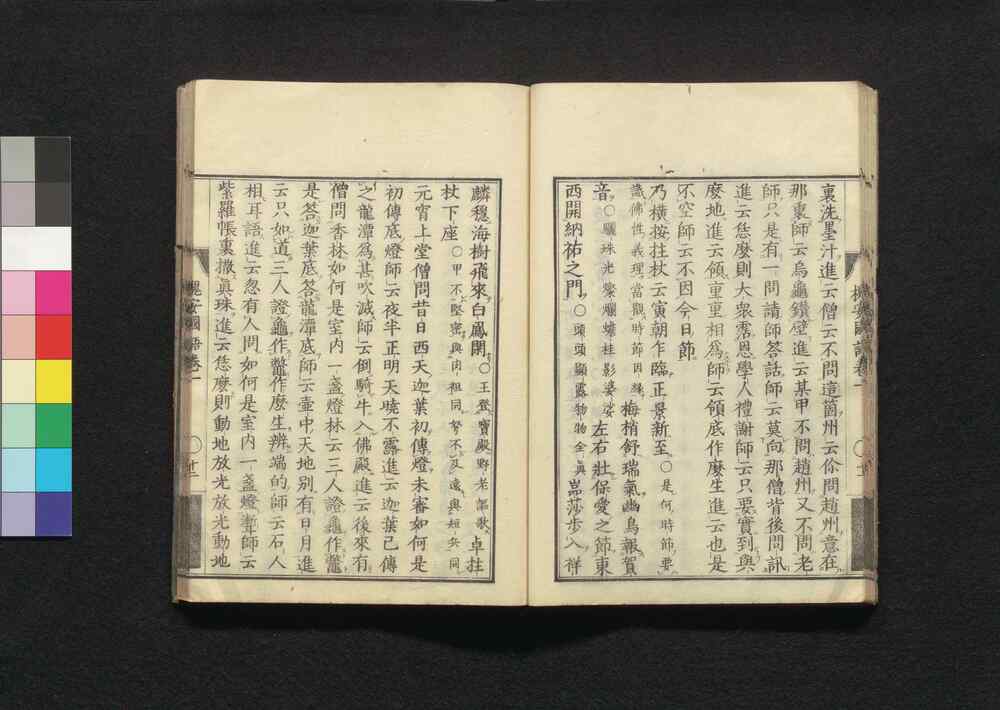 裏洗墨汁進云僧云不問這箇州云伱問趙州意在
那裏師云烏龜鑽壁進云某甲不問趙州又不問老
師只是有一問請師答話師云莫向那僧背後問訊
進云恁麼則大衆霑恩學人禮謝師云只要實到與
麼地進云領重重相爲師云領底作麼生進云也是
不空師云不因今日節
乃橫按拄杖云寅朝乍臨正景新至〇是何時節要
識佛性義理當觀時節因緣梅梢舒瑞氣幽鳥報賀
音〇驪珠光燦爛蟾桂影婆娑左右壯保愛之節東
西開納祐之門〇頭頭顯露物物全眞嵩莎步入祥
麟穩海樹飛來白鳳閑〇王登寶殿野老謳歌卓拄
杖下座〇甲不堅密與肉袒同弩不及遠與短兵同
元宵上堂僧問昔日西天迦葉初傳燈未審如何是
初傳底燈師云夜半正明天曉不露進云迦葉已傳
之龍潭爲甚吹滅師云倒騎牛入佛殿進云後來有
僧問香林如何是室内一盞燈林云三人證龜作鼈
是答迦葉底答龍潭底師云壷中天地別有日月進
云只如道三人證龜作鼈作麼生辨端的師云石人
相耳語進云忽有人問如何是室内一盞燈聻師云
紫羅帳裏撒眞珠進云恁麼則動地放光放光動地
槐安國語卷一
〇
廿二